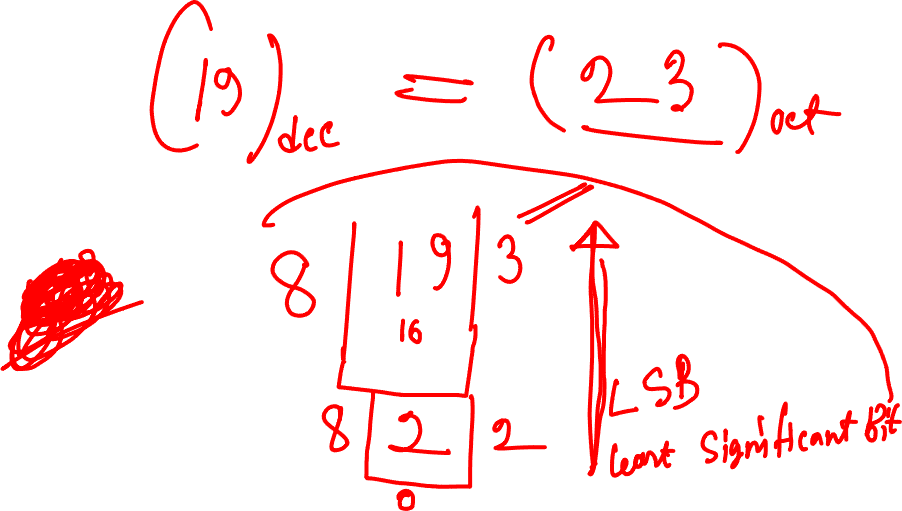 (19)dec = (23)oct
8 | 19 | 3
16
8 | 2 | 2
0
LSB
least significant bit